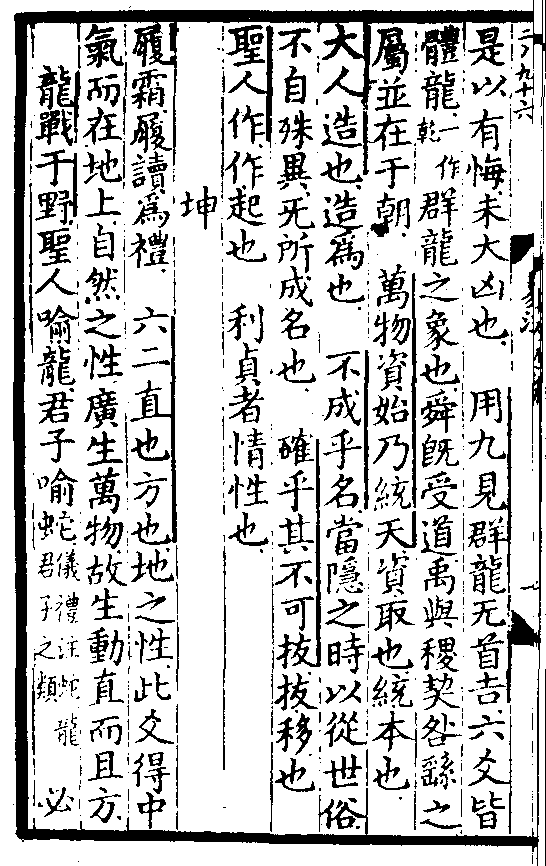 是以有悔未大凶也　用九見群龍无首吉六爻皆
體龍乾一作群龍之象也舜旣受道禹與稷契咎繇之
屬並在于朝　萬物資始乃統天資取也統本也
大人造也造爲也　不成乎名當隱之時以從世俗
不自殊異无所成名也　確乎其不可拔拔移也
聖人作作起也　利貞者情性也
坤
履霜履讀爲禮　六二直也方也地之性此爻得中
氣而在地上自然之性廣生萬物故生動直而且方
龍戰于野聖人喻龍君子喻蛇儀禮注蛇龍君子之類　必